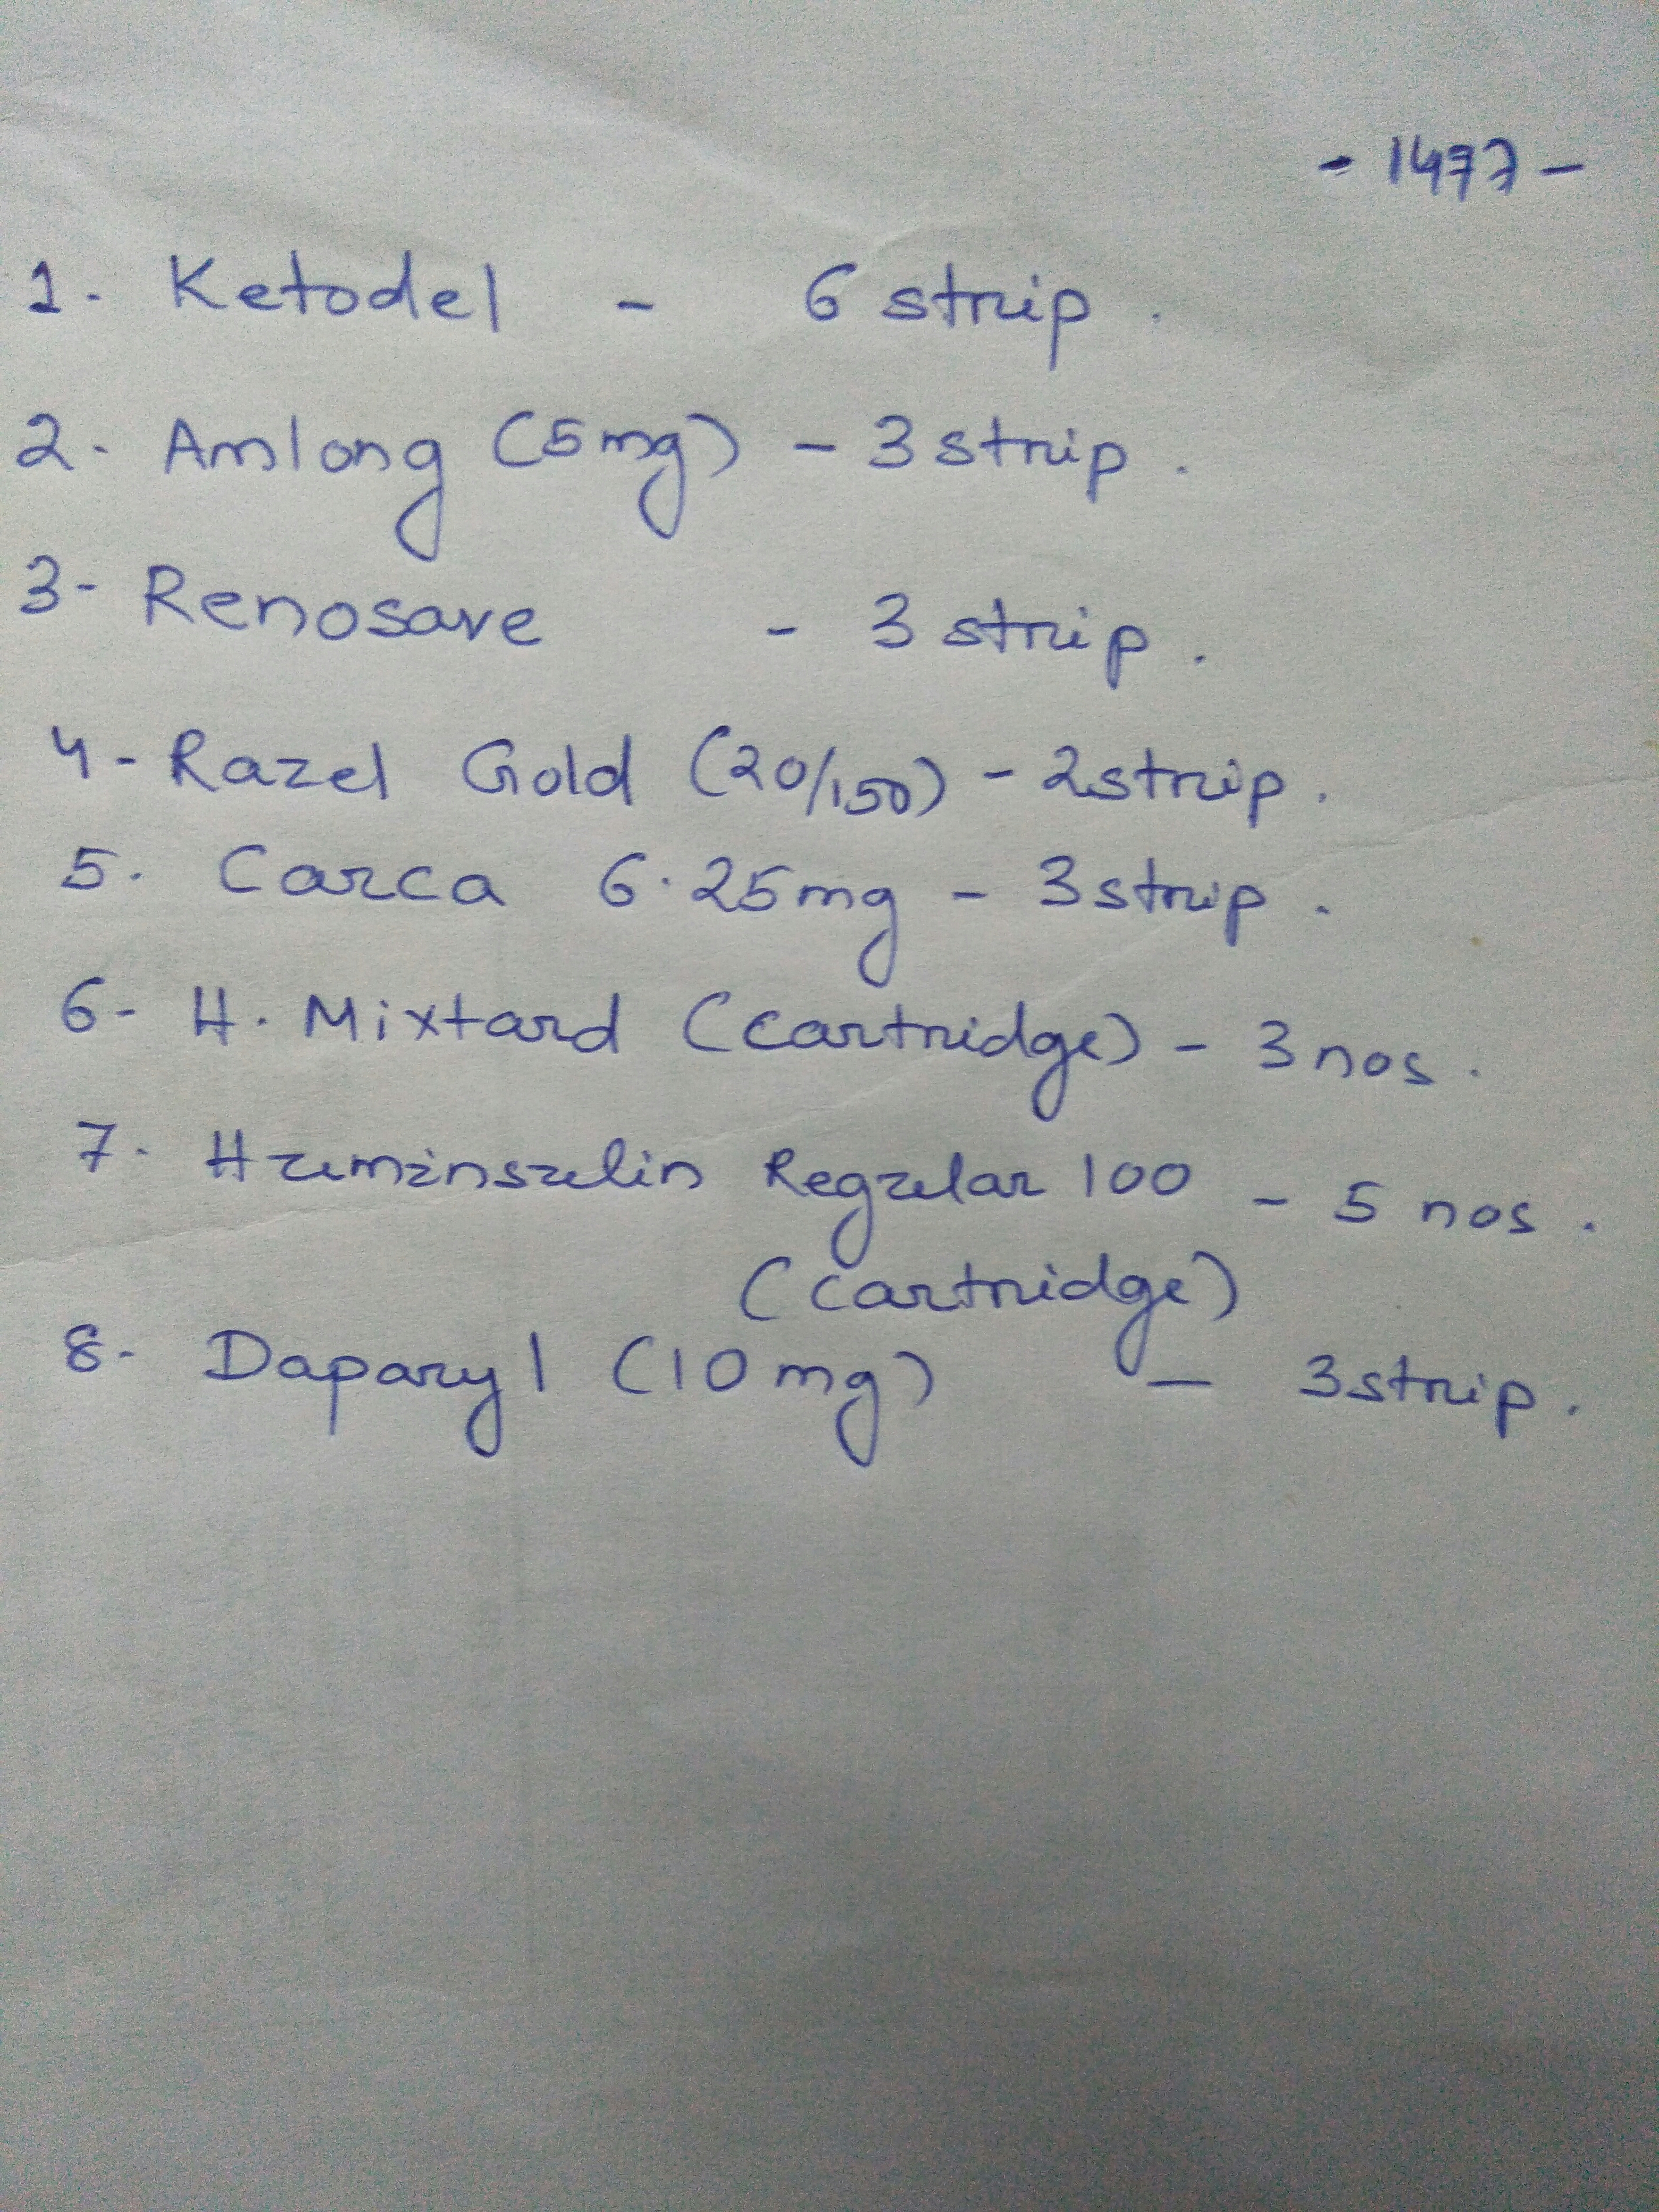 - 1477 -
1. Ketodel - 6 strip.
2. Amlong (5mg) - 3 strip.
3- Renosave - 3 strip.
4- Razel Gold (20/150) - 2 strip.
5. Carca 6.25mg - 3 strip.
6- H. Mixtard (cartridge) - 3 nos.
7. Huminsulin Regular 100 - 5 nos.
(cartridge)
8- Daparyl (10 mg) - 3 strip.